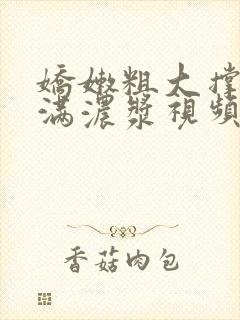 嬌嫩粗大撐
滿濃漿視頻
香菇肉包